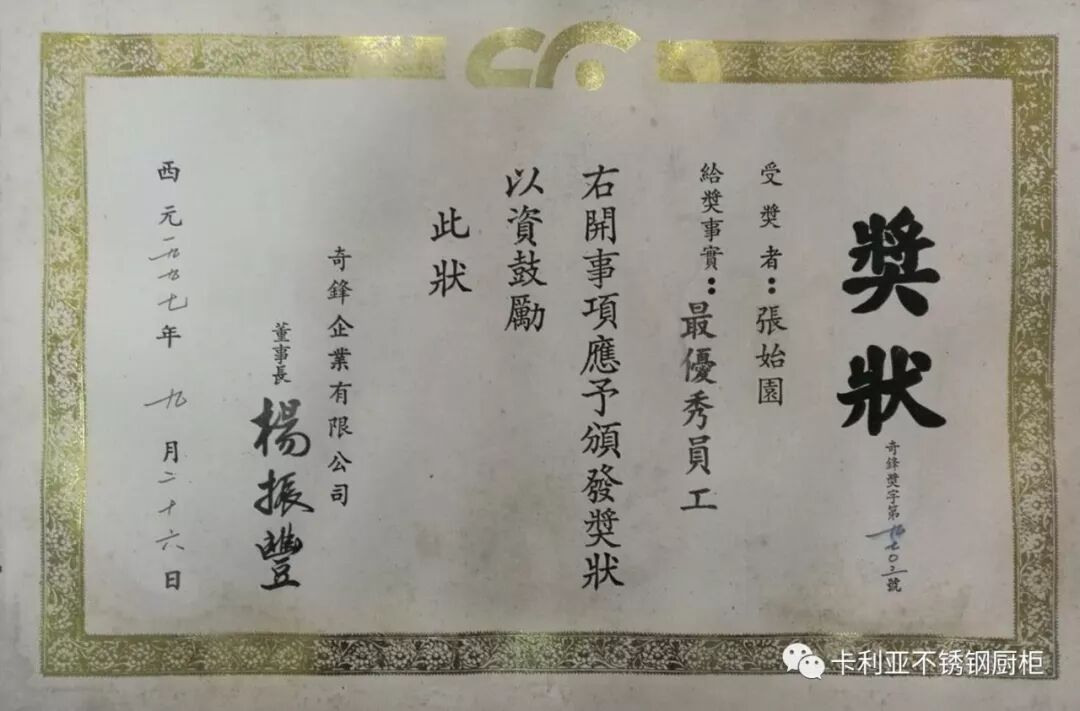 獎狀
奇鋒獎字第九七〇三號
受獎者：張始園
給獎事實：最優秀員工
右開事項應予頒發獎狀
以資鼓勵
此狀
奇鋒企業有限公司
董事長 楊振豐
西元一九九七年 九月二十六日
卡利亚不锈钢厨柜